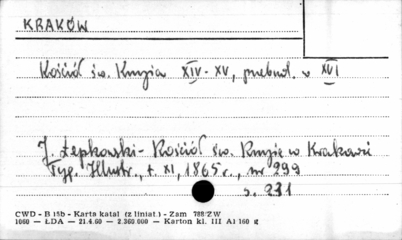 KRAKÓW
Kościół św. Krzyża XIV-XV, przebud. w XVI
J. Łepkowski - Kościół św. Krzyża w Krakowie
Tyg. Illustr., t. XI, 1865 r., nr 299
s. 231
CWD - B 15b - Karta katal (z liniat.) - Zam 788/ZW
1060 — ŁDA — 21.4.60 — 2.360.000 — Karton kl. III A1 160 g